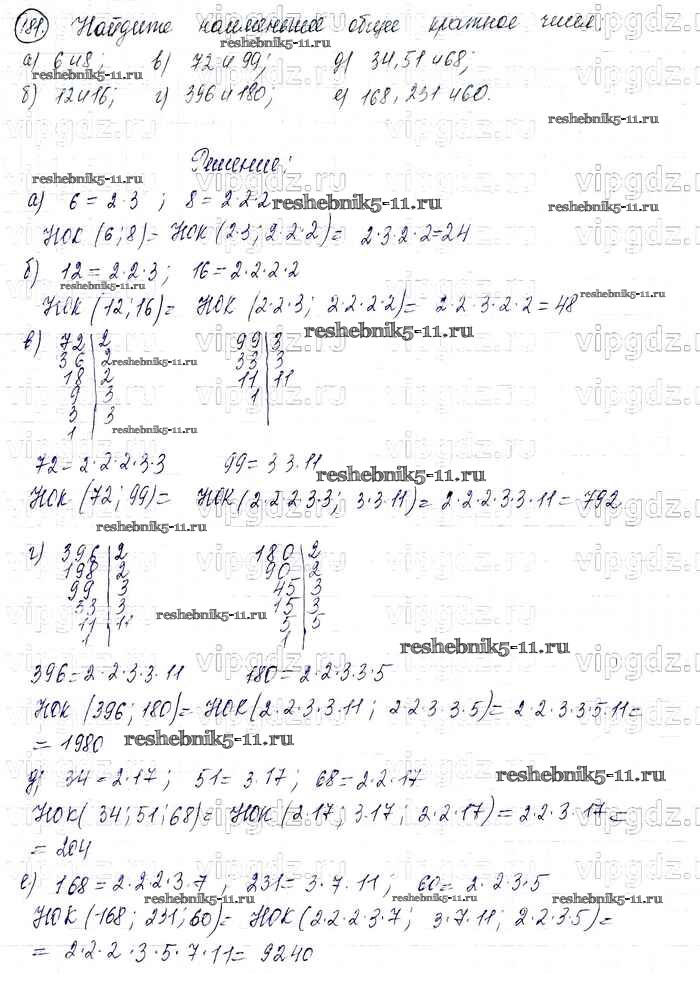 181. Найдите наименьшее общее кратное чисел:
а) 6 и 8; в) 72 и 99; д) 34, 51 и 68;
б) 12 и 16; г) 396 и 180; е) 168, 231 и 60.
Решение:
а) 6 = 2·3 ; 8 = 2·2·2
НОК (6; 8) = НОК (2·3; 2·2·2) = 2·3·2·2=24
б) 12=2·2·3; 16=2·2·2·2
НОК (12; 16)= НОК (2·2·3; 2·2·2·2)= 2·2·3·2·2=48
в) 72|2 99|3
36|2 33|3
18|2 11|11
9|3 1|
3|3
1|
72=2·2·2·3·3 99=3·3·11
НОК (72; 99)= НОК(2·2·2·3·3; 3·3·11)= 2·2·2·3·3·11=792
г) 396|2 180|2
198|2 90|2
99|3 45|3
33|3 15|3
11|11 5|5
1| 1|
396=2·2·3·3·11 180=2·2·3·3·5
НОК (396; 180)= НОК(2·2·3·3·11; 2·2·3·3·5)= 2·2·3·3·5·11=
= 1980
д) 34=2·17; 51=3·17; 68=2·2·17
НОК( 34; 51; 68)= НОК (2·17; 3·17; 2·2·17)= 2·2·3·17=
= 204
е) 168=2·2·2·3·7 ; 231=3·7·11; 60=2·2·3·5
НОК (168; 231; 60)= НОК(2·2·2·3·7; 3·7·11; 2·2·3·5)=
= 2·2·2·3·5·7·11= 9240
reshebnik5-11.ru
vipgdz.ru